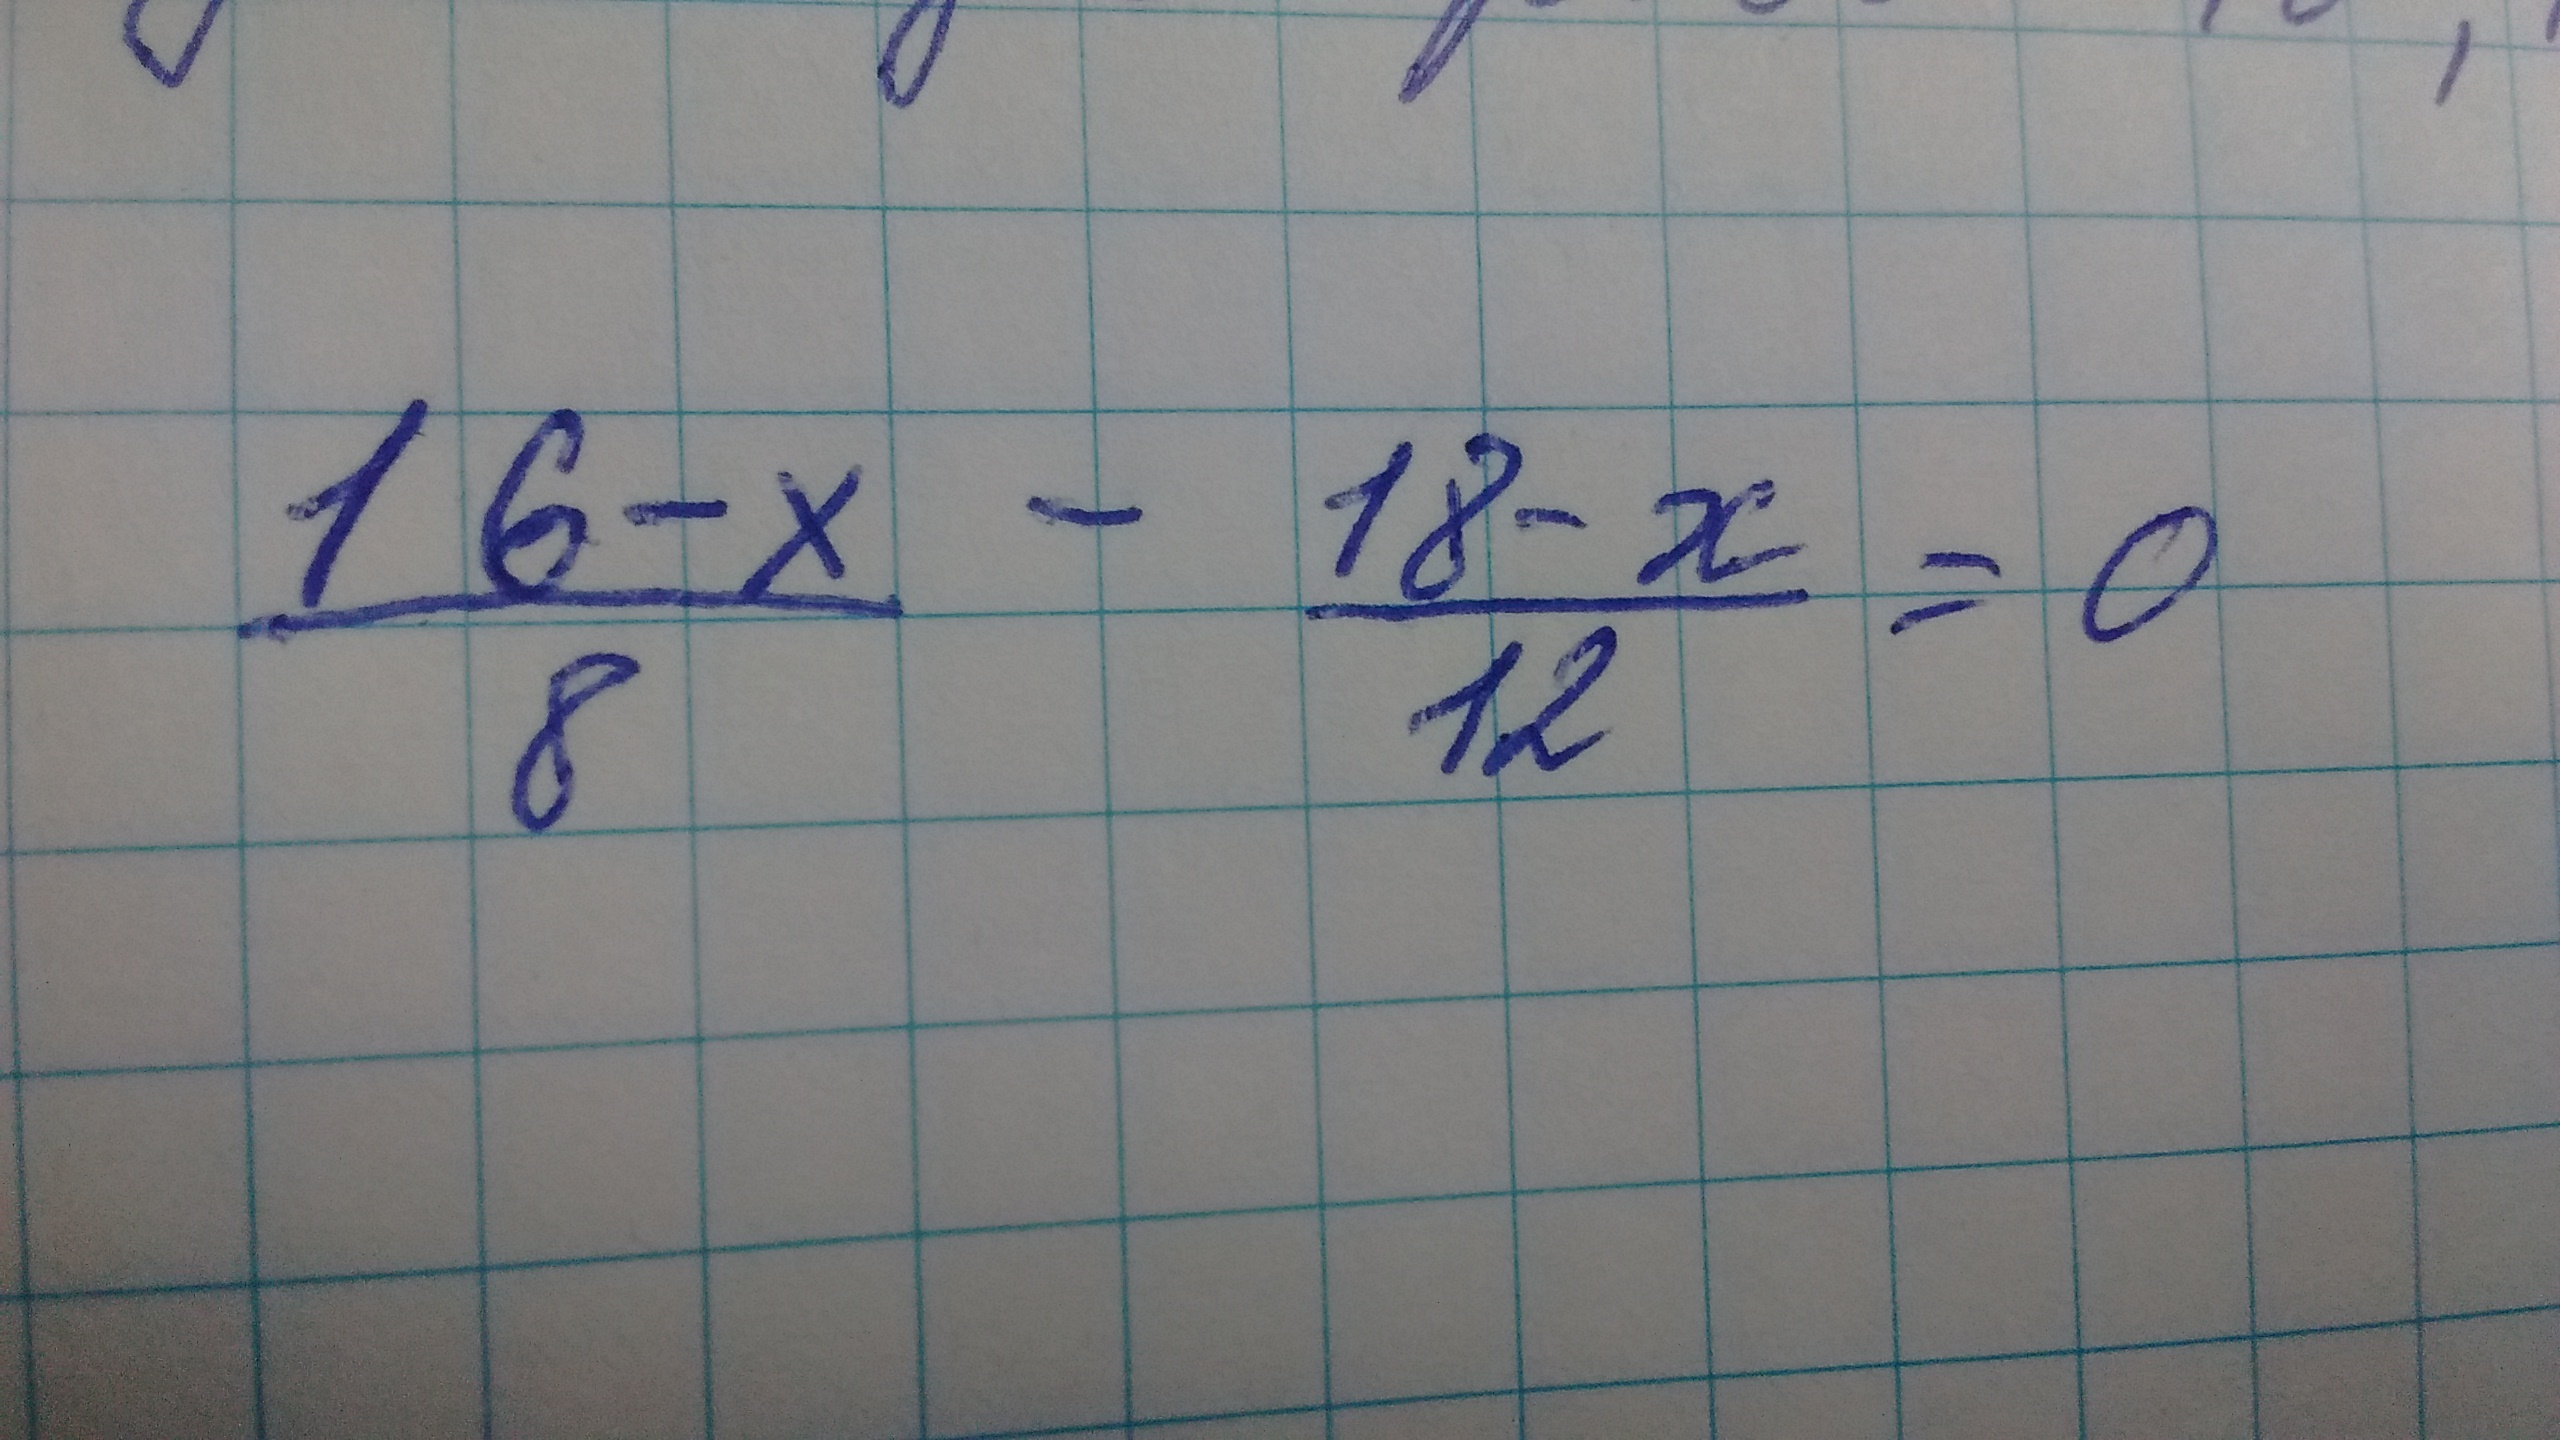 16-x/8 - 18-x/12 = 0